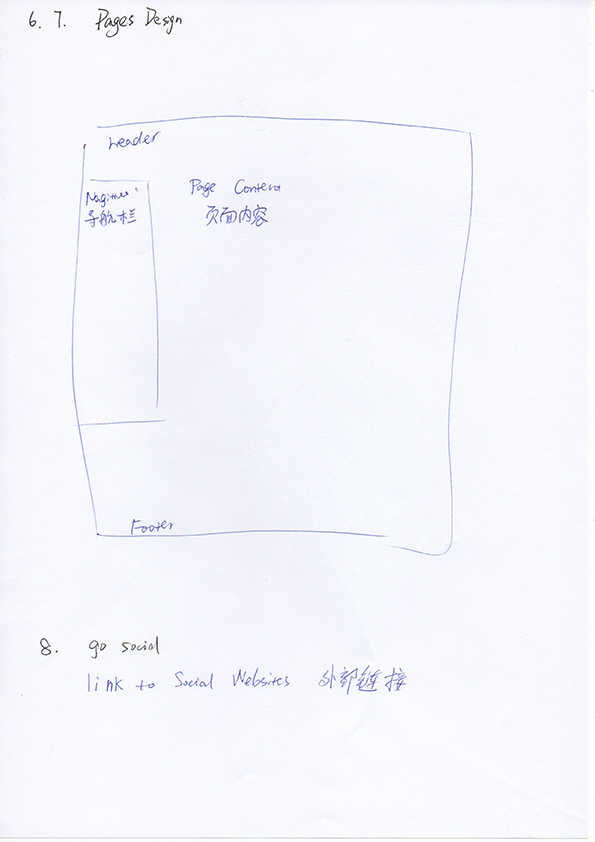 6. 7. Pages Design
header
导航栏
Page Content
页面内容
Footer
8. go social
link to Social Websites 外部链接